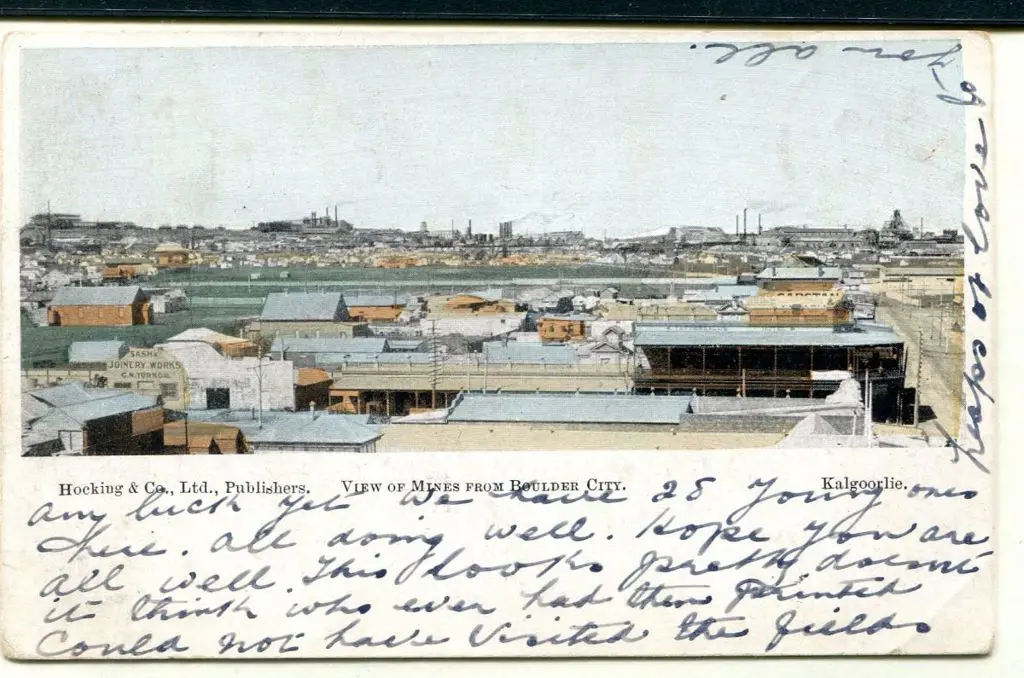 SASH &
JOINERY WORKS
CAPSTAN
Hocking & Co., Ltd., Publishers. View of Mines from Boulder City. Kalgoorlie.
any luck yet We have 28 Young ones
here. all doing well. Hope you are
all well. This looks pretty doesnt
it think who ever had them Printed
Could not have Visited the fields
heaps of love to
you all.